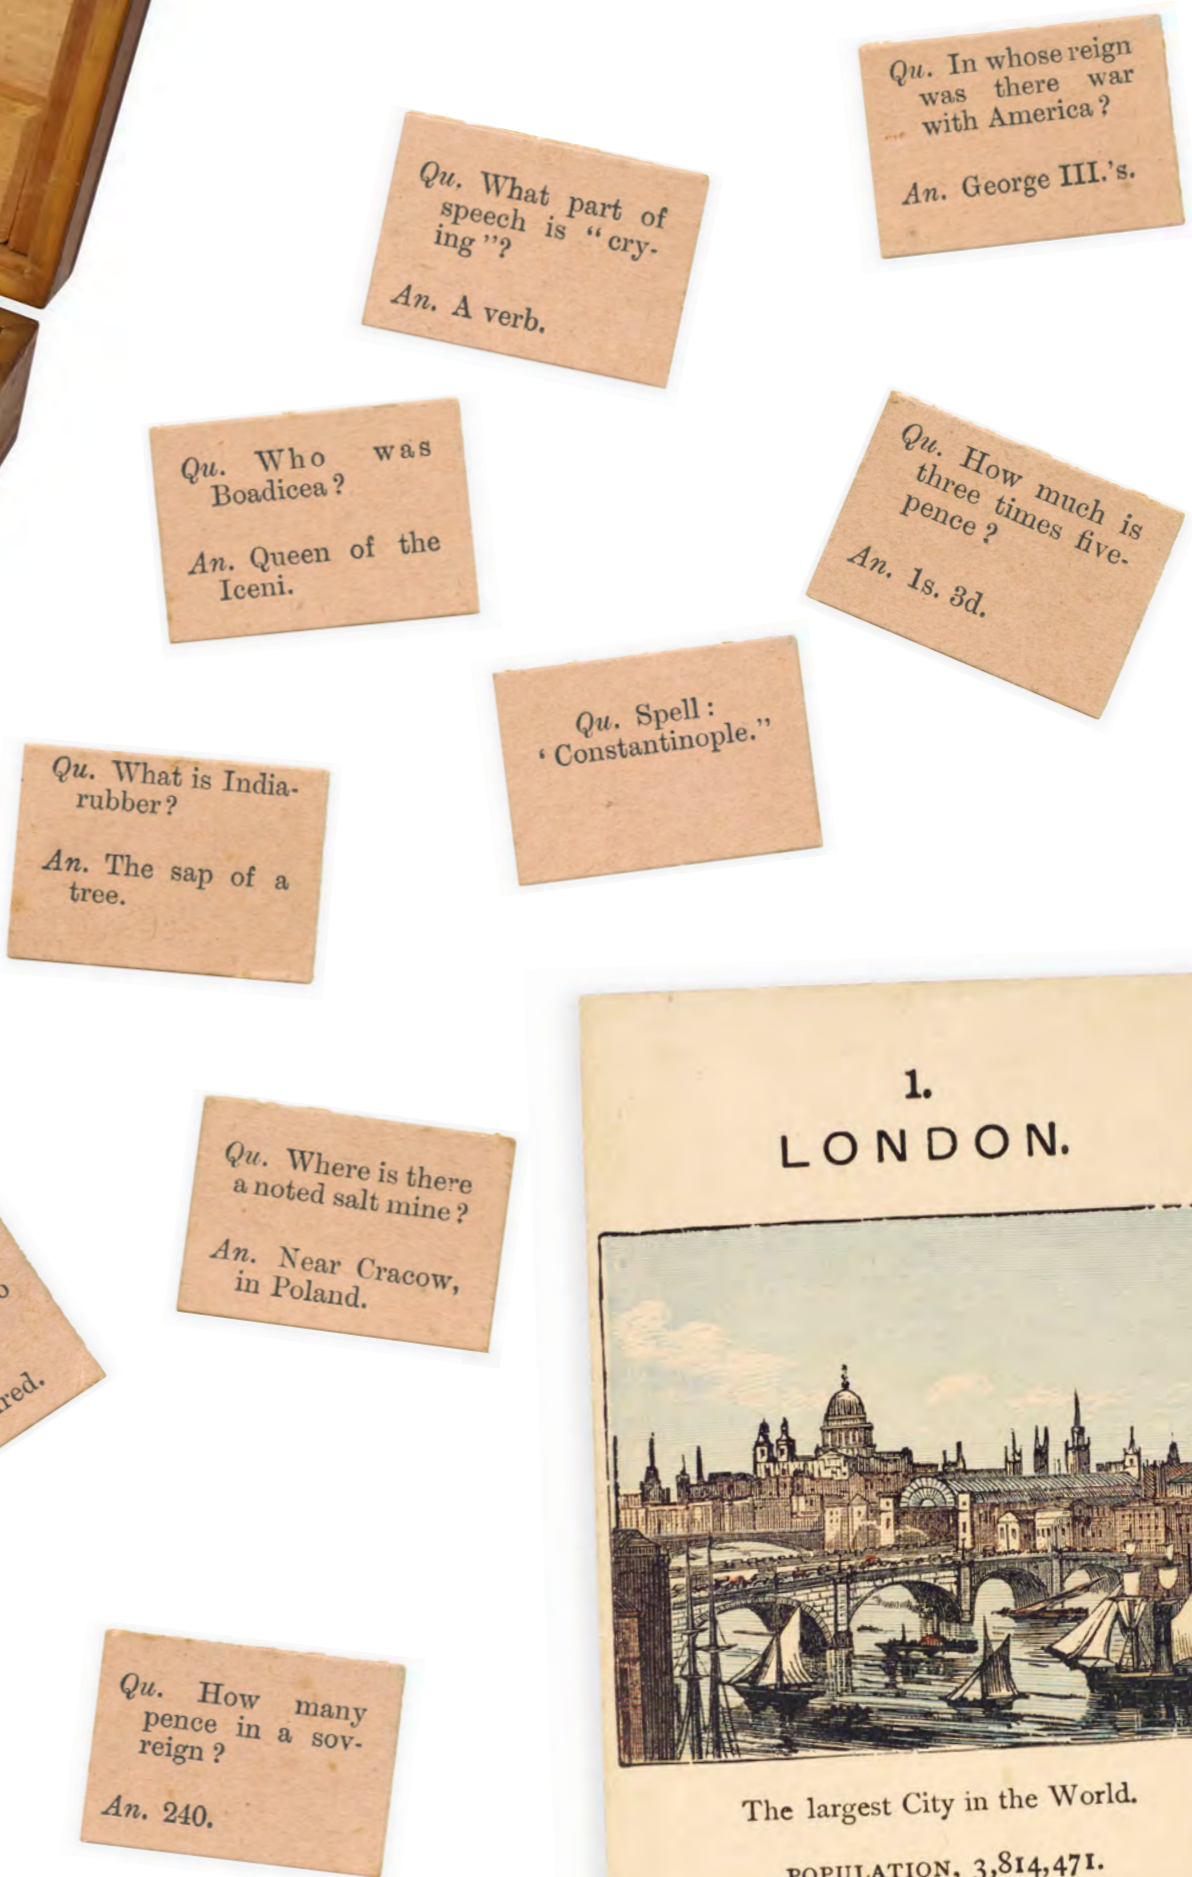 Qu. In whose reign
was there war
with America?
An. George III.'s.
Qu. What part of
speech is “cry-
ing”?
An. A verb.
Qu. Who was
Boadicea?
An. Queen of the
Iceni.
Qu. How much is
three times five-
pence?
An. 1s. 3d.
Qu. Spell:
‘Constantinople.”
Qu. What is India-
rubber?
An. The sap of a
tree.
Qu. Where is there
a noted salt mine?
An. Near Cracow,
in Poland.
red.
Qu. How many
pence in a sov-
reign?
An. 240.
1.
LONDON.
The largest City in the World.
POPULATION, 3,814,471.